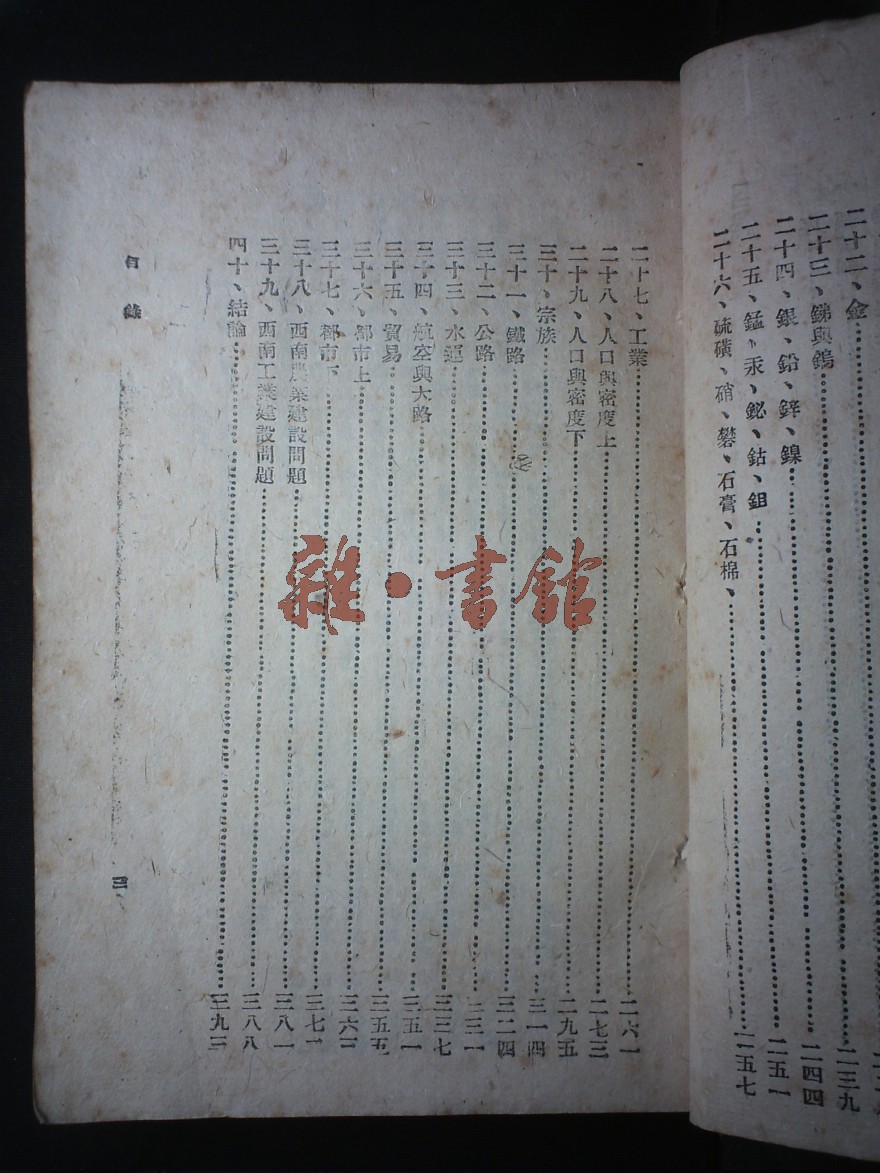 二十二、金
二十三、銻與鎢……二三九
二十四、銀、鉛、鋅、鎳……二四四
二十五、錳、汞、鉍、鈷、鉬……二五一
二十六、硫磺、硝、礬、石膏、石棉、……二五七
二十七、工業……二六一
二十八、人口與密度上……二七三
二十九、人口與密度下……二九五
三十、宗族……三一四
三十一、鐵路……三二四
三十二、公路……三三一
三十三、水運……三三七
三十四、航空與大路……三五一
三十五、貿易……三五五
三十六、都市上……三六三
三十七、都市下……三七一
三十八、西南農業建設問題……三八一
三十九、西南工業建設問題……三八八
四十、結論……三九三
目錄
三
雜·書館